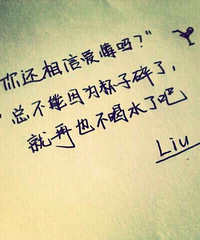 你还相信爱情吗？"
"总不能因为杯子碎了，
就再也不喝水了吧
Liu